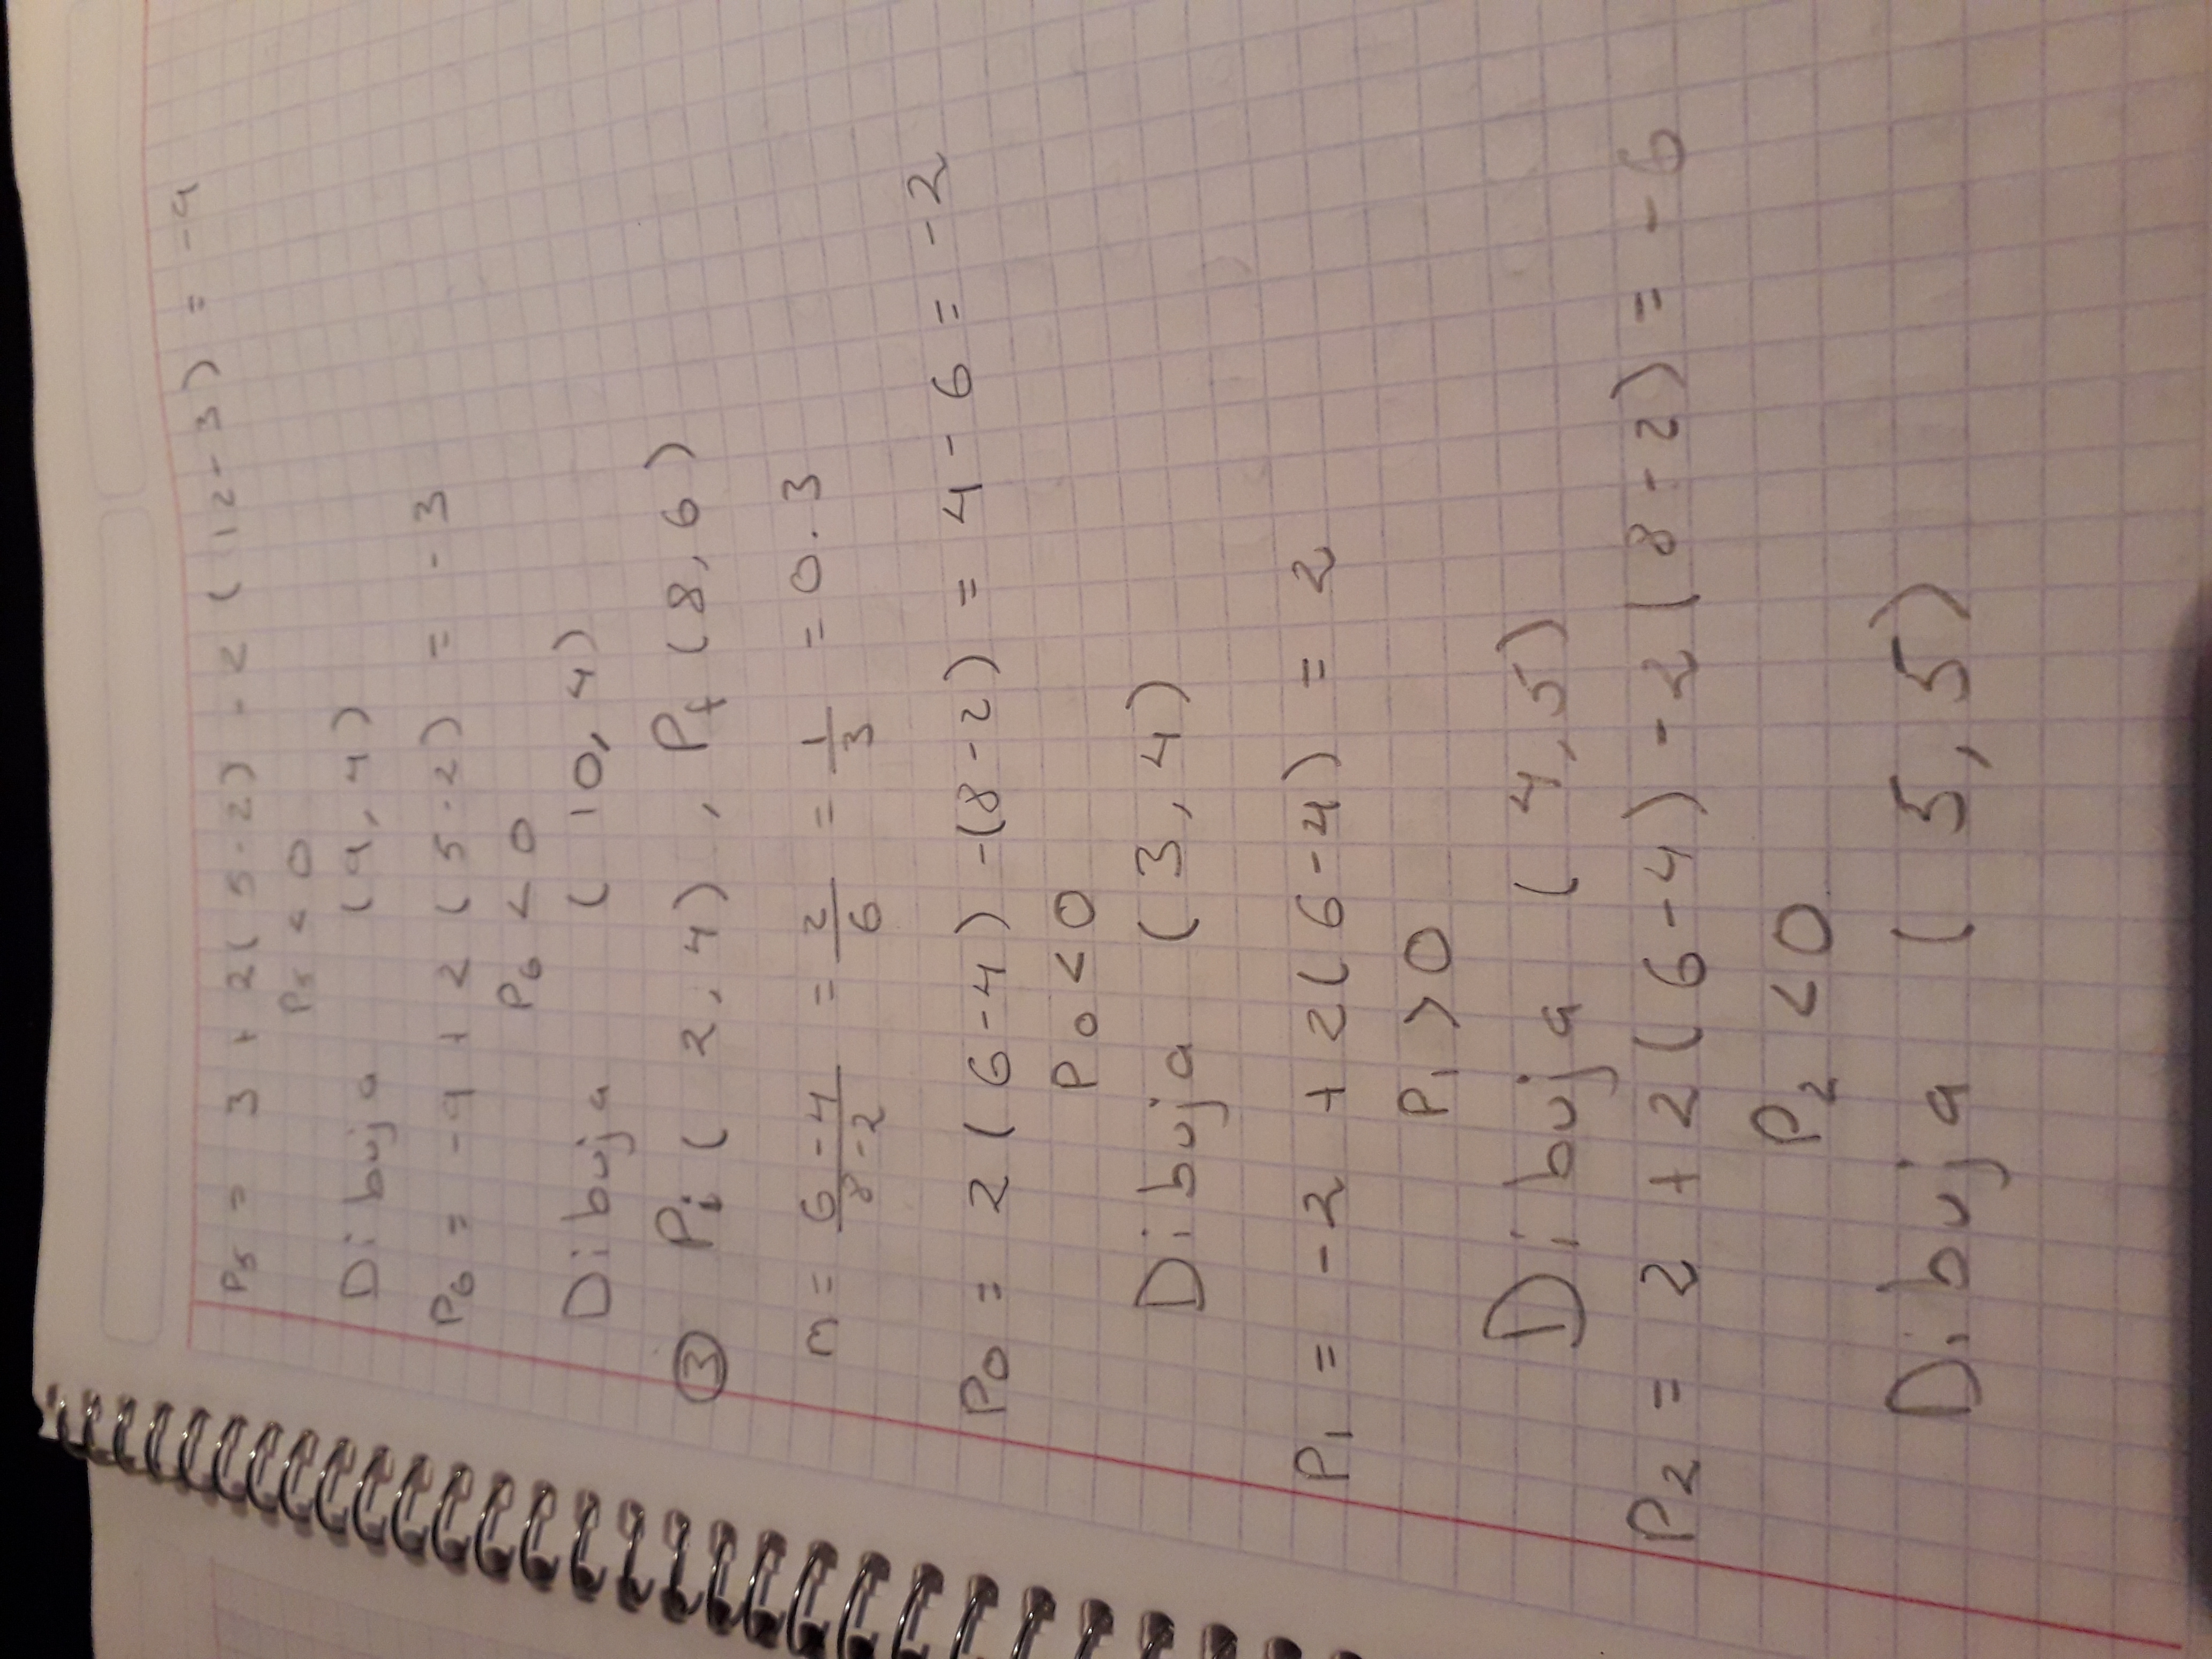 P5 = 3 + 2(5-2) - 2(12-3) = -9
P5 < 0
Dibuja (9,4)
P6 = -9 + 2(5-2) = -3
P6 < 0
Dibuja (10,4)
③ Pi(2,4), Pf(8,6)
m = 6-4/8-2 = 2/6 = 1/3 = 0.3
P0 = 2(6-4) -(8-2) = 4-6 = -2
P0 < 0
Dibuja (3,4)
P1 = -2 + 2(6-4) = 2
P1 > 0
Dibuja (4,5)
P2 = 2 + 2(6-4) - 2(8-2) = -6
P2 < 0
Dibuja (5,5)